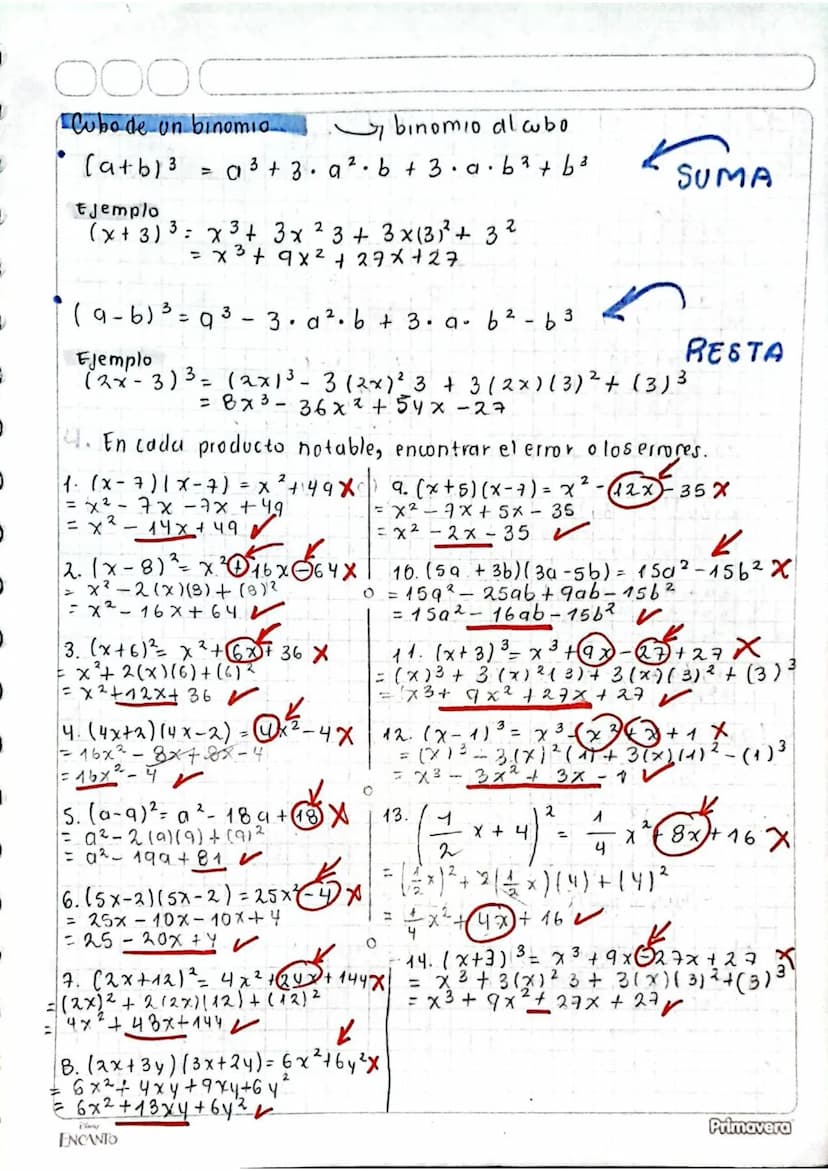 Cubo de un binomio → binomio al cubo
• (a+b)³ = a³ + 3 · a² · b + 3 · a · b² + b³
SUMA
Ejemplo
(x+3)³ = x³ + 3x²3 + 3x(3)² + 3²
= x³ + 9x² + 27x + 27
• (a-b)³ = a³ - 3 · a² · b + 3 · a · b² - b³
RESTA
Ejemplo
(2x-3)³ = (2x)³ - 3(2x)²3 + 3(2x)(3)² + (3)³
= 8x³ - 36x² + 54x - 27
4. En cada producto notable, encontrar el error o los errores.
1. (x-7)(x-7) = x² + 49 X
= x² - 7x - 7x + 49
= x² - 14x + 49 ✓
2. (x-8)² = x² + 16x - 64 X
= x² - 2(x)(8) + (8)²
= x² - 16x + 64 ✓
3. (x+6)² = x² + 6x + 36 X
= x² + 2(x)(6) + (6)²
= x² + 12x + 36 ✓
4. (4x+2)(4x-2) = 4x² - 4 X
= 16x² - 8x + 8x - 4
= 16x² - 4 ✓
5. (a-9)² = a² - 18a + 18 X
= a² - 2(a)(9) + (9)²
= a² - 19a + 81 ✓
6. (5x-2)(5x-2) = 25x² - 4 X
= 25x - 10x - 10x + 4
= 25 - 20x + 4 ✓
7. (2x+12)² = 4x² + 24x + 144 X
= (2x)² + 2(2x)(12) + (12)²
= 4x² + 48x + 144 ✓
8. (2x+3y)(3x+2y) = 6x² + 6y² X
= 6x² + 4xy + 9xy + 6y²
= 6x² + 13xy + 6y² ✓
9. (x+5)(x-7) = x² - 12x - 35 X
= x² - 7x + 5x - 35
= x² - 2x - 35 ✓
10. (5a + 3b)(3a - 5b) = 15a² - 15b² X
= 15a² - 25ab + 9ab - 15b²
= 15a² - 16ab - 15b² ✓
11. (x+3)³ = x³ + 9x - 27 + 27 X
= (x)³ + 3(x)²(3) + 3(x)(3)² + (3)³
= x³ + 9x² + 27x + 27 ✓
12. (x-1)³ = x³ - x² + x + 1 X
= (x)³ - 3(x)²(1) + 3(x)(1)² - (1)³
= x³ - 3x² + 3x - 1 ✓
13. (1/2 x + 4)² = 1/4 x² + 8x + 16 X
= (1/2 x)² + 2(1/2 x)(4) + (4)²
= 1/4 x² + 4x + 16 ✓
14. (x+3)³ = x³ + 9x - 27x + 27 X
= x³ + 3(x)²3 + 3(x)(3)² + (3)³
= x³ + 9x² + 27x + 27 ✓
Disney
ENCANTO
Primavera